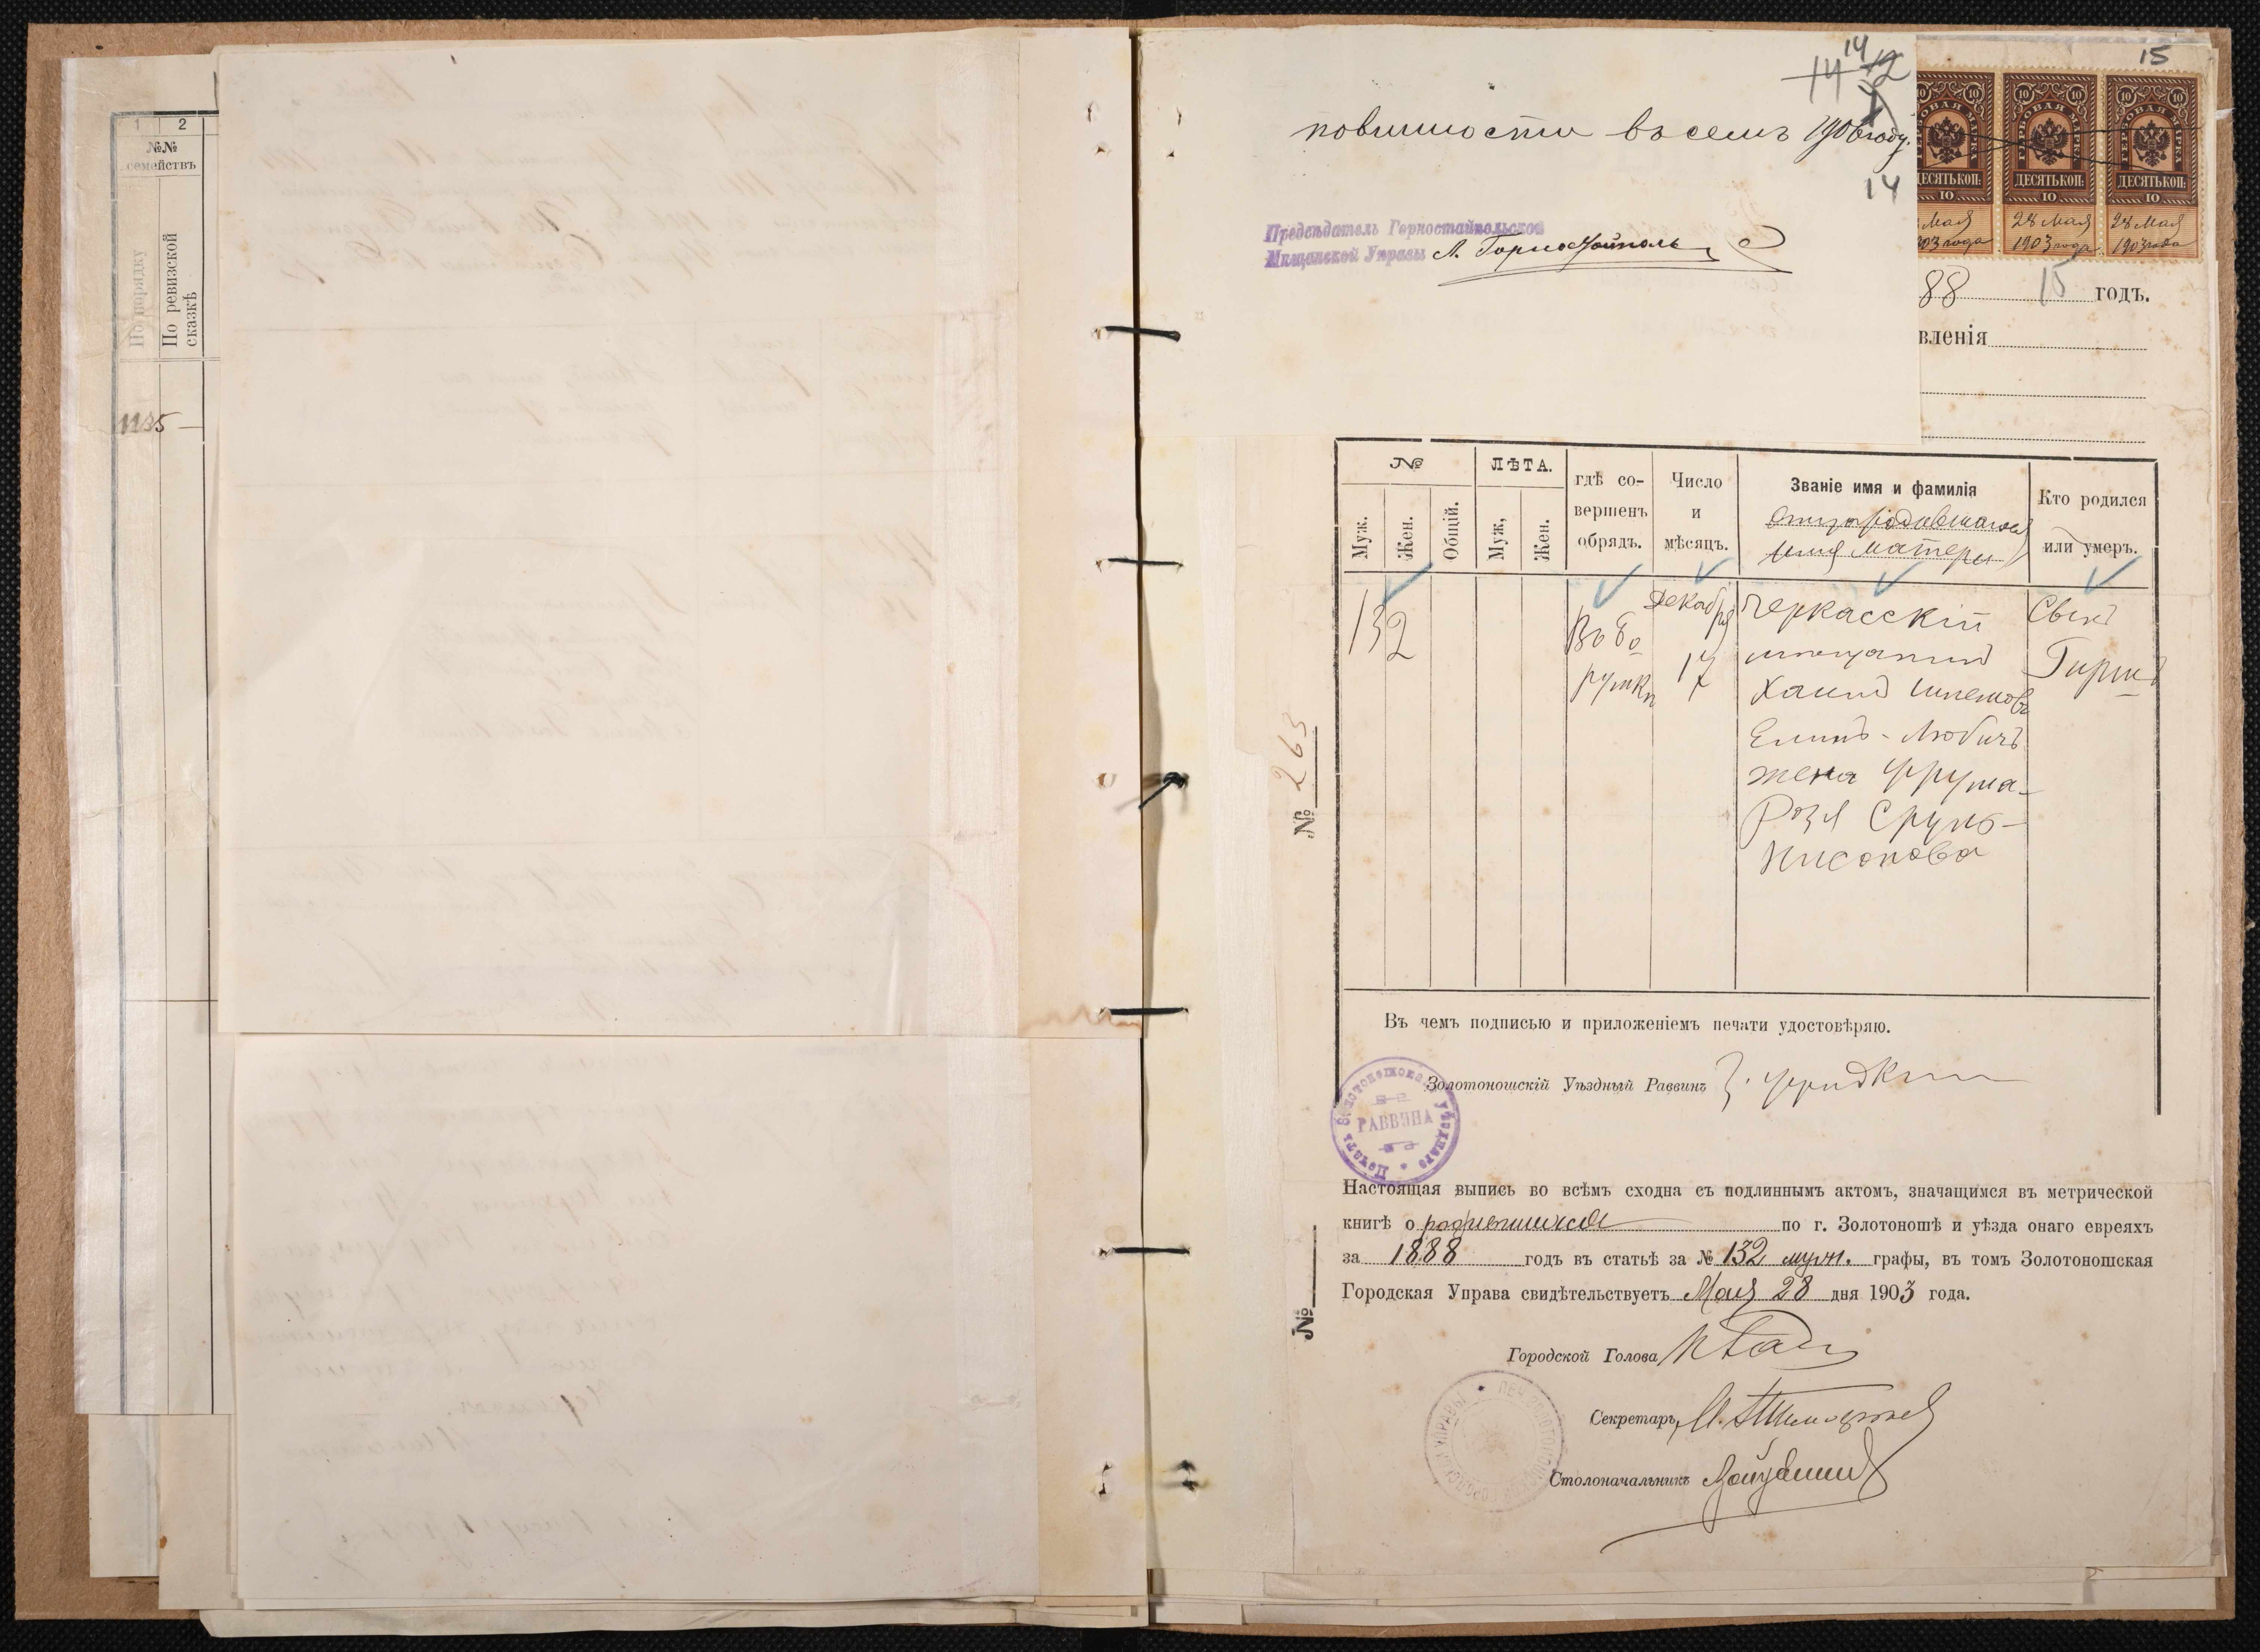 1 2
№№
семействъ
По порядку
По ревизской
сказкѣ
1135 —
14 14 12
повинности въ семъ 1906 году.
14
Предсѣдатель Горностайпольской
Мѣщанской Управы Л. Горностайполь
15
ДЕСЯТЬ КОП:
10
Мая
1903 года
ДЕСЯТЬ КОП:
10
28 Мая
1903 года
ДЕСЯТЬ КОП:
10
28 Мая
1903 года
88 15 годъ.
вленія
№
Муж.
Жен.
Общій.
ЛѢТА.
Муж,
Жен.
гдѣ со-
вершенъ
обрядъ.
Число
и
мѣсяцъ.
Званіе имя и фамилія
отца родившагося
имя матери
Кто родился
или умеръ.
132
Въ Бо
рушкѣ
Декабря
17
Черкасскій
мѣщанинъ
Хаимъ
Елинъ - Любичъ
жена Фрума-
Розя Сруль-
Нисонова
Сынъ
Гиршъ
№ 263
Въ чемъ подписью и приложеніемъ печати удостовѣряю.
Золотоношскій Уѣздный Раввинъ
Печать Золотоношскаго Уѣзднаго
РАВВИНА
Настоящая выпись во всѣмъ сходна съ подлиннымъ актомъ, значащимся въ метрической
книгѣ о родившихся по г. Золотоношѣ и уѣзда онаго евреяхъ
за 1888 годъ въ статьѣ за № 132 муж. графы, въ томъ Золотоношская
Городская Управа свидѣтельствуетъ Мая 28 дня 1903 года.
№
Городской Голова
Секретарь
Столоначальникъ